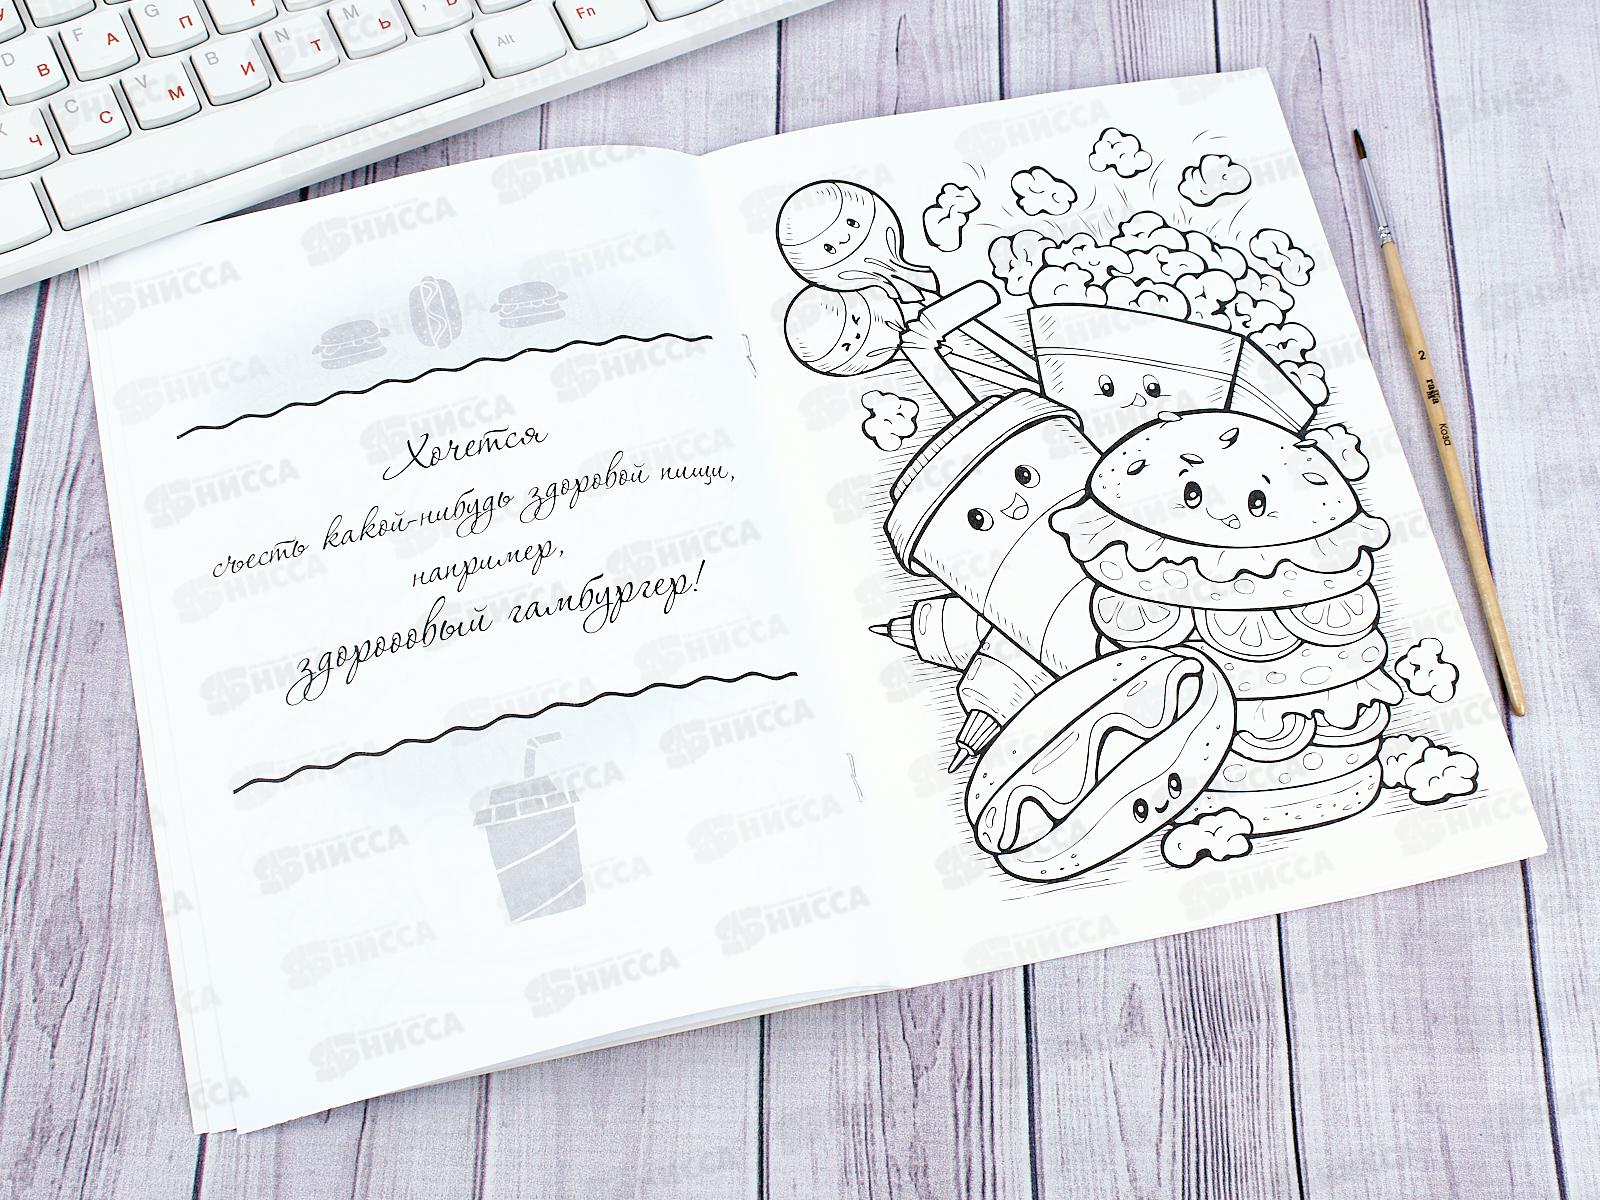 F А G П
D В А М Ь
С V В И N Т М Ь Alt Fn
Ч С М
Хочется
съесть какой-нибудь здоровой пищи,
например,
здорооовый гамбургер!
2 гамма Коза
НИССА